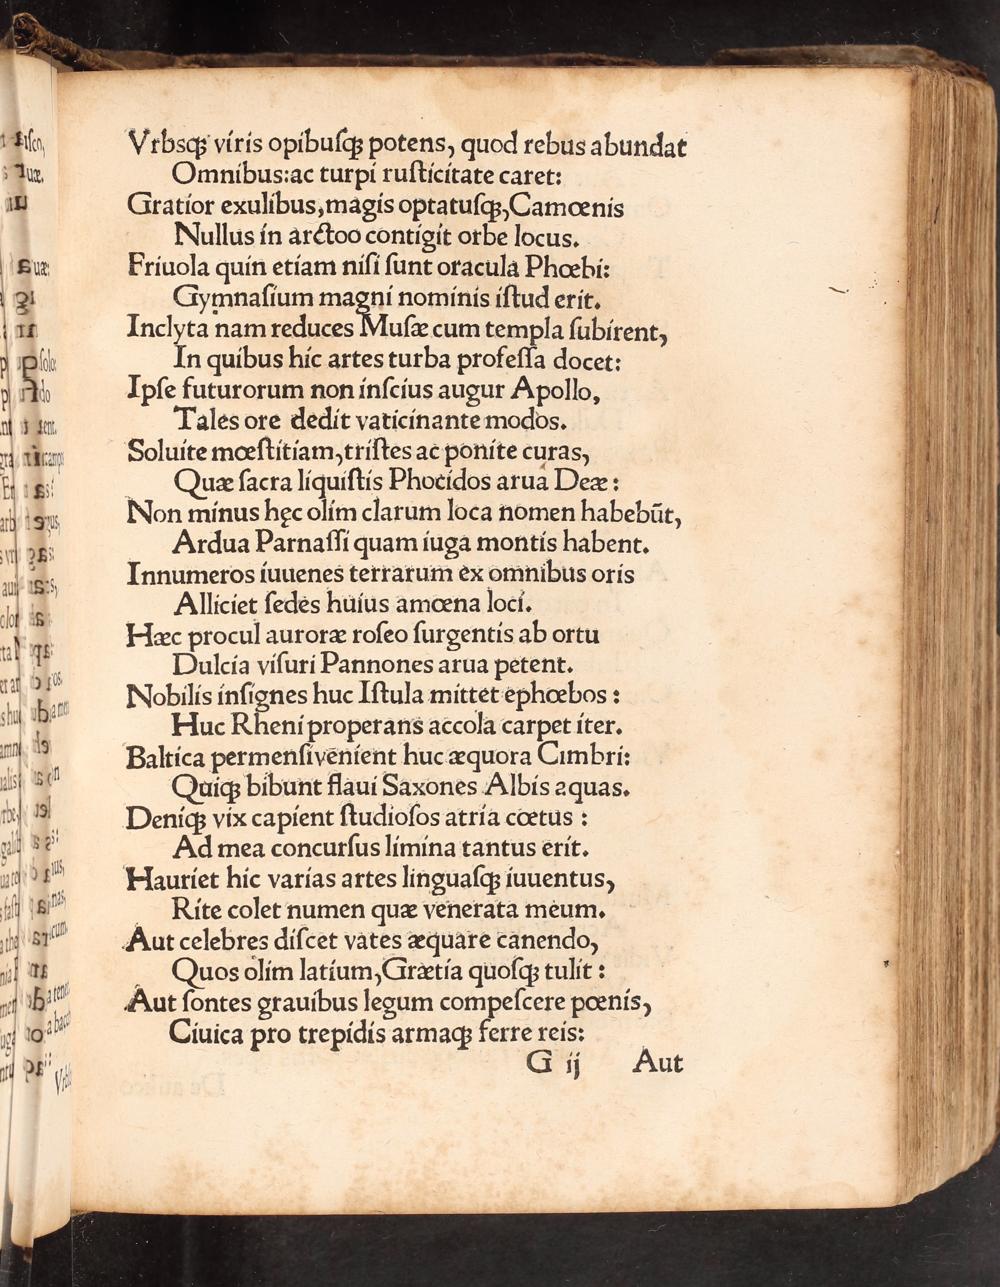 Vrbsq; viris opibuſq; potens, quod rebus abundat
Omnibus:ac turpi ruſticitate caret:
Gratior exulibus,magis optatuſq;,Camœnis
Nullus in arctoo contigit orbe locus.
Friuola quin etiam niſi ſunt oracula Phœbi:
Gymnaſium magni nominis iſtud erit.
Inclyta nam reduces Muſæ cum templa ſubirent,
In quibus hic artes turba profeſſa docet:
Ipſe futurorum non inſcius augur Apollo,
Tales ore dedit vaticinante modos.
Soluite mœſtitiam,triſtes ac ponite curas,
Quæ ſacra liquiſtis Phocidos arua Deæ:
Non minus hęc olim clarum loca nomen habebũt,
Ardua Parnaſſi quam iuga montis habent.
Innumeros iuuenes terrarum ex omnibus oris
Alliciet ſedes huius amœna loci.
Hæc procul auroræ roſeo ſurgentis ab ortu
Dulcia viſuri Pannones arua petent.
Nobilis inſignes huc Iſtula mittet ephœbos:
Huc Rheni properans accola carpet iter.
Baltica permenſi venient huc æquora Cimbri:
Quiq; bibunt flaui Saxones Albis aquas.
Deniq; vix capient ſtudioſos atria cœtus:
Ad mea concurſus limina tantus erit.
Hauriet hic varias artes linguaſq; iuuentus,
Rite colet numen quæ venerata meum.
Aut celebres diſcet vates æquare canendo,
Quos olim latium,Grætia quoſq; tulit:
Aut ſontes grauibus legum compeſcere pœnis,
Ciuica pro trepidis armaq; ferre reis:
G ij Aut